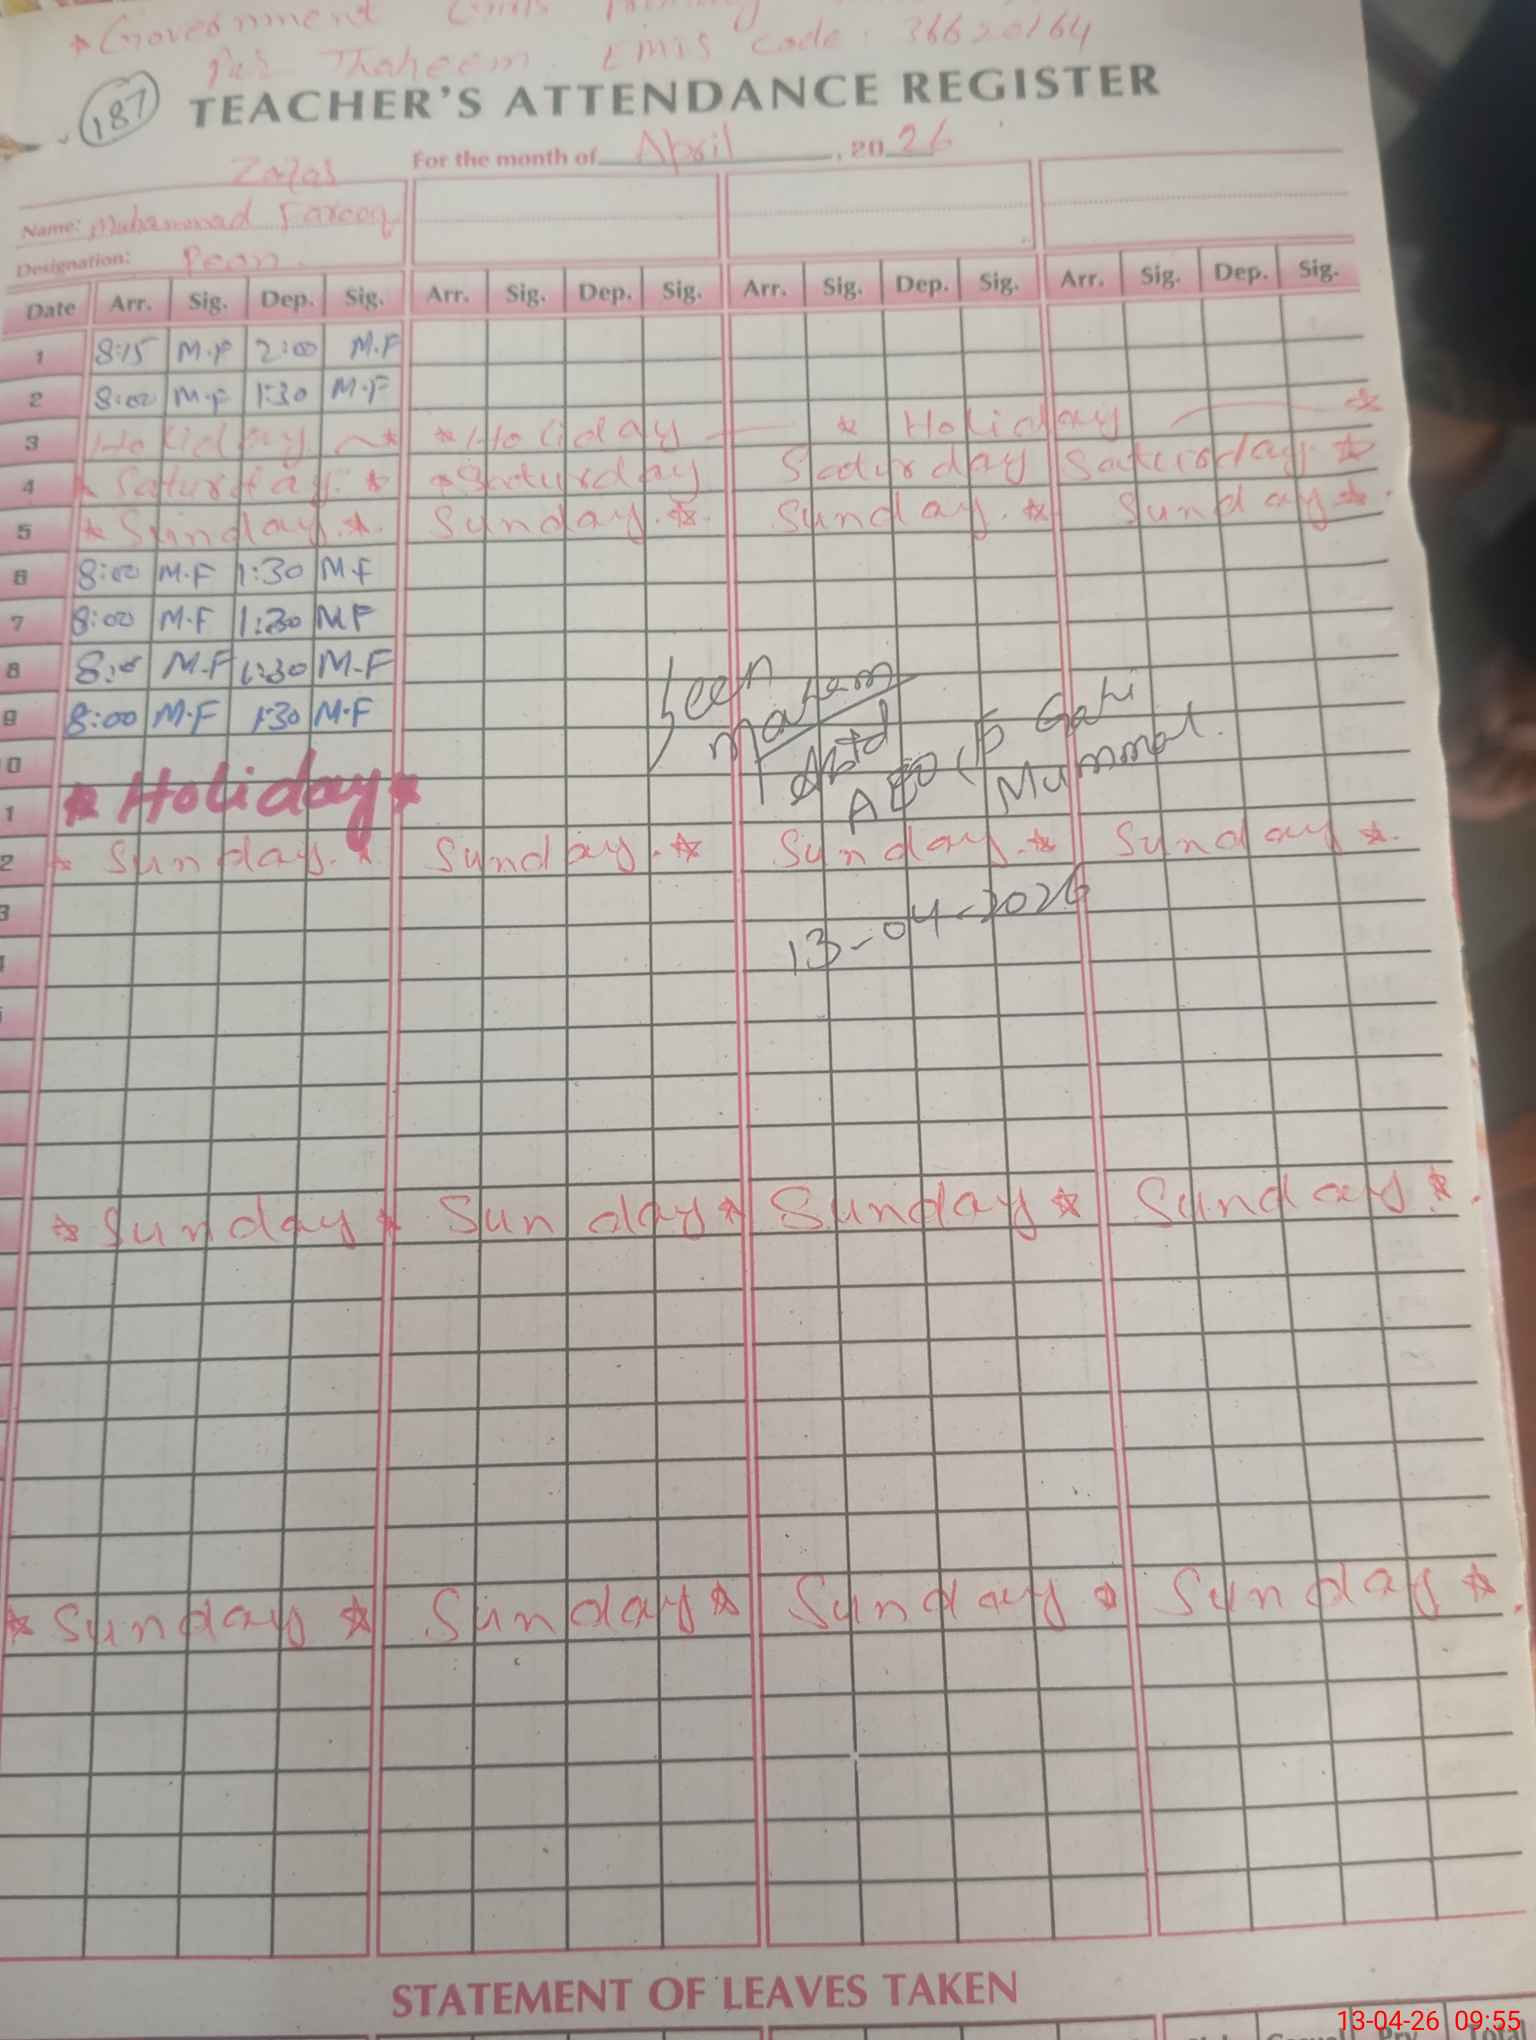 *Government Girls Primary
Thaheem. EMIS Code: 36620164
187 TEACHER'S ATTENDANCE REGISTER
For the month of April, 2026
Name: Muhammad Farooq
Designation: Peon.
Date Arr. Sig. Dep. Sig. Arr. Sig. Dep. Sig. Arr. Sig. Dep. Sig. Arr. Sig. Dep. Sig.
1 8:15 M.F 2:00 M.F
2 8:00 M.F 1:30 M.F
3 Holiday * * Holiday * Holiday *
4 * Saturday. * * Saturday Saturday Saturday. *
5 * Sunday. * Sunday. * Sunday. * Sunday *
6 8:00 M.F 1:30 M.F
7 8:00 M.F 1:30 M.F
8 8:0 M.F 1:30 M.F
9 8:00 M.F 1:30 M.F
Seen
Mahem
0
* Holiday *
AEO
1
2 * Sunday. * Sunday. * Sunday. * Sunday *
3
13-04-2026
* Sunday * Sunday * Sunday * Sunday *
* Sunday * Sunday * Sunday Sunday *
STATEMENT OF LEAVES TAKEN
13-04-26 09:55